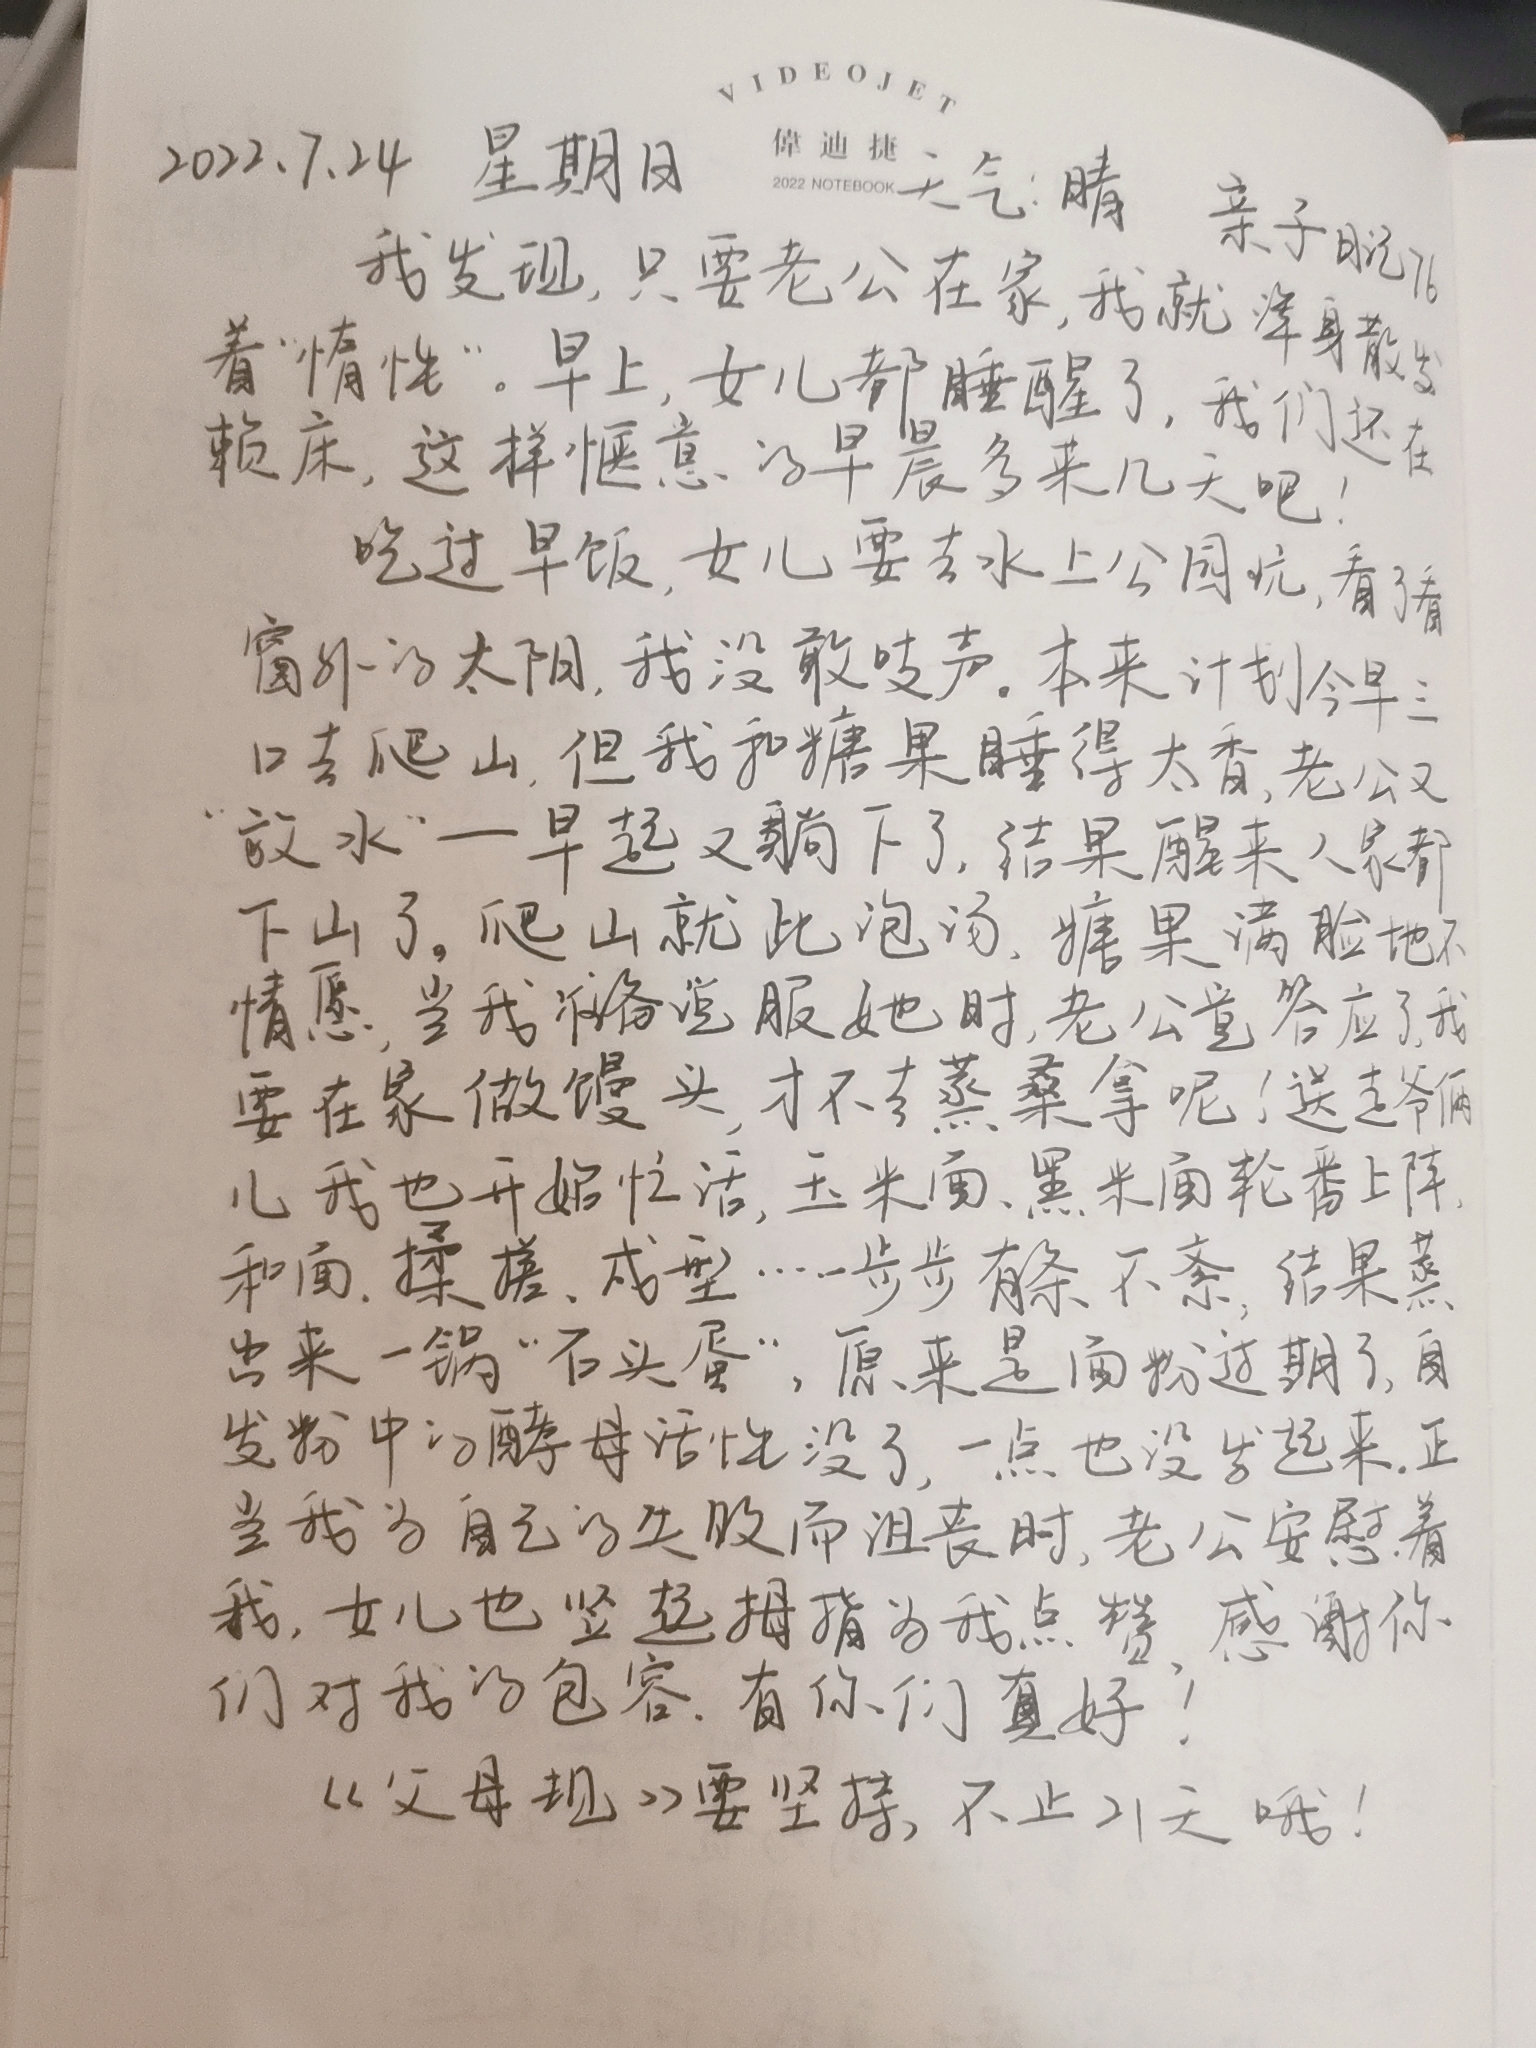 VIDEOJET
偉迪捷
2022 NOTEBOOK
2022.7.24 星期日 天气:晴 亲子日记76
我发现,只要老公在家,我就浑身散发
着"惰性"。早上,女儿都睡醒了,我们还在
赖床,这样惬意的早晨多来几天吧!
吃过早饭,女儿要去水上公园玩,看了看
窗外的太阳,我没敢吱声。本来计划今早三
口去爬山,但我和糖果睡得太香,老公又
"放水"一早起又躺下了,结果醒来人家都
下山了。爬山就此泡汤,糖果满脸地不
情愿,当我准备说服她时,老公竟答应了,我
要在家做馒头,才不去蒸桑拿呢!送走爷俩
儿我也开始忙活,玉米面、黑米面轮番上阵,
和面、揉搓、成型……一步步有条不紊,结果蒸
出来一锅"石头蛋",原来是面粉过期了,自
发粉中的酵母活性没了,一点也没发起来.正
当我为自己的失败而沮丧时,老公安慰着
我,女儿也竖起拇指为我点赞,感谢你
们对我的包容.有你们真好!
《父母规》要坚持,不止21天哦!